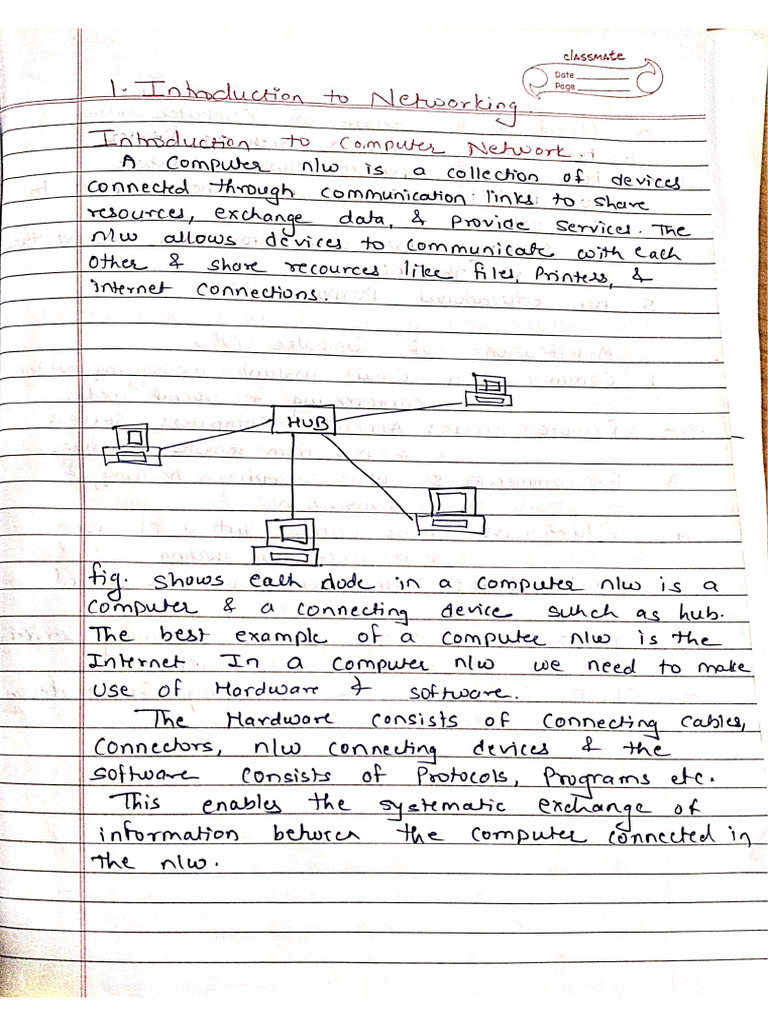 classmate
Date
Page
1. Introduction to Networking.
Introduction to Computer Network.
A Computer n/w is a collection of devices
connected through communication links to share
resources, exchange data, & provide services. The
n/w allows devices to communicate with each
other & share recources like files, Printers, &
internet connections.
HUB
fig. shows each dode in a computer n/w is a
computer & a connecting device suhch as hub.
The best example of a computer n/w is the
Internet. In a computer n/w we need to make
use of Hardware & software.
The Hardware consists of connecting cables,
connectors, n/w connecting devices & the
software consists of Protocols, Programs etc.
This enables the systematic exchange of
information between the computer connected in
the n/w.